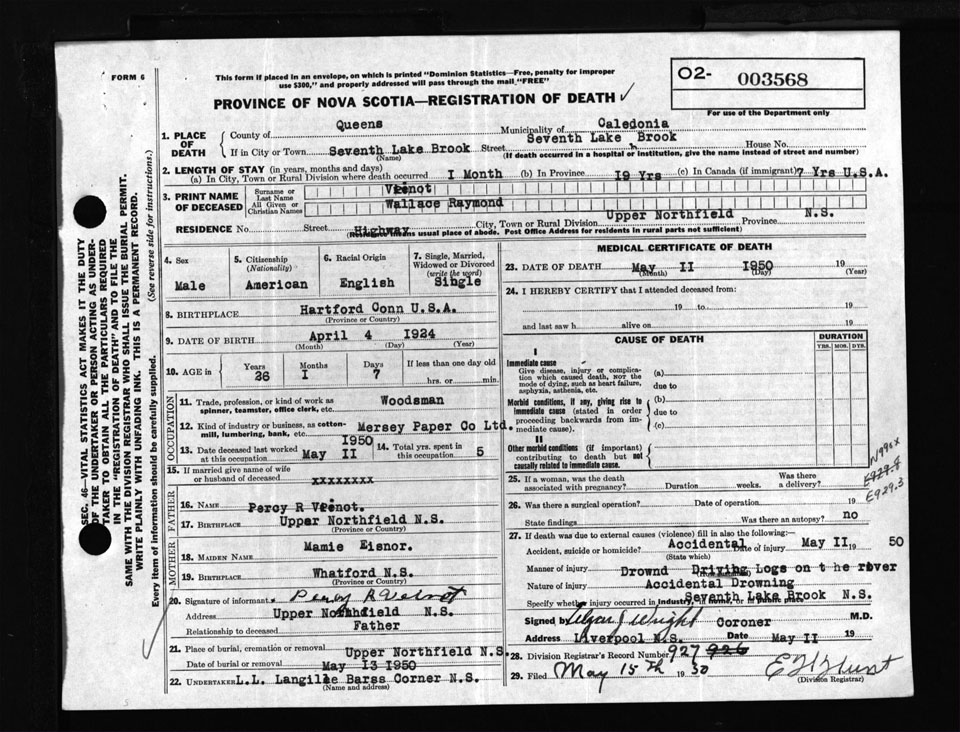 FORM 6
This form if placed in an envelope, on which is printed "Dominion Statistics—Free, penalty for improper
use $300," and properly addressed will pass through the mail "FREE"
O2- 003568
PROVINCE OF NOVA SCOTIA—REGISTRATION OF DEATH ✓
For use of the Department only
SEC. 46—VITAL STATISTICS ACT MAKES IT THE DUTY
OF THE UNDERTAKER OR PERSON ACTING AS UNDER-
TAKER TO OBTAIN ALL THE PARTICULARS REQUIRED
IN THE "REGISTRATION OF DEATH" AND TO FILE THE
SAME WITH THE DIVISION REGISTRAR WHO SHALL ISSUE THE BURIAL PERMIT.
WRITE PLAINLY WITH UNFADING INK. THIS IS A PERMANENT RECORD.
Every item of information should be carefully supplied. (See reverse side for instructions.)
1. PLACE OF DEATH
County of Queens Municipality of Caledonia
If in City or Town Seventh Lake Brook Street Seventh Lake Brook House No.
(Name) (If death occurred in a hospital or institution, give the name instead of street and number)
2. LENGTH OF STAY (in years, months and days)
(a) In City, Town or Rural Division where death occurred I Month (b) In Province I9 Yrs (c) In Canada (if immigrant) 7 Yrs U.S.A.
3. PRINT NAME OF DECEASED
Surname or Last Name Veinot
All Given or Christian Names Wallace Raymond
RESIDENCE No. Street Highway City, Town or Rural Division Upper Northfield Province N.S.
(Residence means usual place of abode. Post Office Address for residents in rural parts not sufficient)
4. Sex Male
5. Citizenship (Nationality) American
6. Racial Origin English
7. Single, Married, Widowed or Divorced (write the word) Single
8. BIRTHPLACE Hartford Conn U.S.A.
(Province or Country)
9. DATE OF BIRTH April 4 I924
(Month) (Day) (Year)
10. AGE in Years 26 Months I Days 7 If less than one day old
hrs. or min.
OCCUPATION
11. Trade, profession, or kind of work as
spinner, teamster, office clerk, etc. Woodsman
12. Kind of industry or business, as cotton-
mill, lumbering, bank, etc. Mersey Paper Co Ltd.
13. Date deceased last worked
at this occupation May II I950
14. Total yrs. spent in
this occupation 5
15. If married give name of wife
or husband of deceased xxxxxxxx
FATHER
16. NAME Percy R Veinot.
17. BIRTHPLACE Upper Northfield N.S.
(Province or Country)
MOTHER
18. MAIDEN NAME Mamie Eisnor.
19. BIRTHPLACE Whatford N.S.
(Province or Country)
20. Signature of informant Percy R Veinot
Address Upper Northfield N.S.
Relationship to deceased Father
21. Place of burial, cremation or removal Upper Northfield N.S.
Date of burial or removal May I3 I950
22. UNDERTAKER L.L. Langille Barss Corner N.S.
(Name and address)
MEDICAL CERTIFICATE OF DEATH
23. DATE OF DEATH May II I950 19
(Month) (Day) (Year)
24. I HEREBY CERTIFY that I attended deceased from:
19 to 19
and last saw h alive on 19
CAUSE OF DEATH
DURATION
YRS. MOS. DYS.
I
Immediate cause
Give disease, injury or complica-
tion which caused death, NOT the
mode of dying, such as heart failure,
asphyxia, asthenia, etc.
(a)
due to
Morbid conditions, if any, giving rise to
immediate cause (stated in order
proceeding backwards from im-
mediate cause).
(b)
due to
(c)
II
Other morbid conditions (if important)
contributing to death but not
causally related to immediate cause.
N990x
E929.3
25. If a woman, was the death
associated with pregnancy? Duration weeks. Was there
a delivery?
26. Was there a surgical operation? Date of operation 19
State findings Was there an autopsy? no
27. If death was due to external causes (violence) fill in also the following:—
Accident, suicide or homicide? Accidental Date of injury May II 19 50
(State which)
Manner of injury Drownd Driving Logs on the river
Nature of injury Accidental Drowning
Specify whether injury occurred in industry, in home, or in public place Seventh Lake Brook N.S.
Signed by Elgar J Wright Coroner M.D.
Address Liverpool N.S. Date May II 19
28. Division Registrar's Record Number 927 926
29. Filed May 15th 19 50
(Division Registrar)